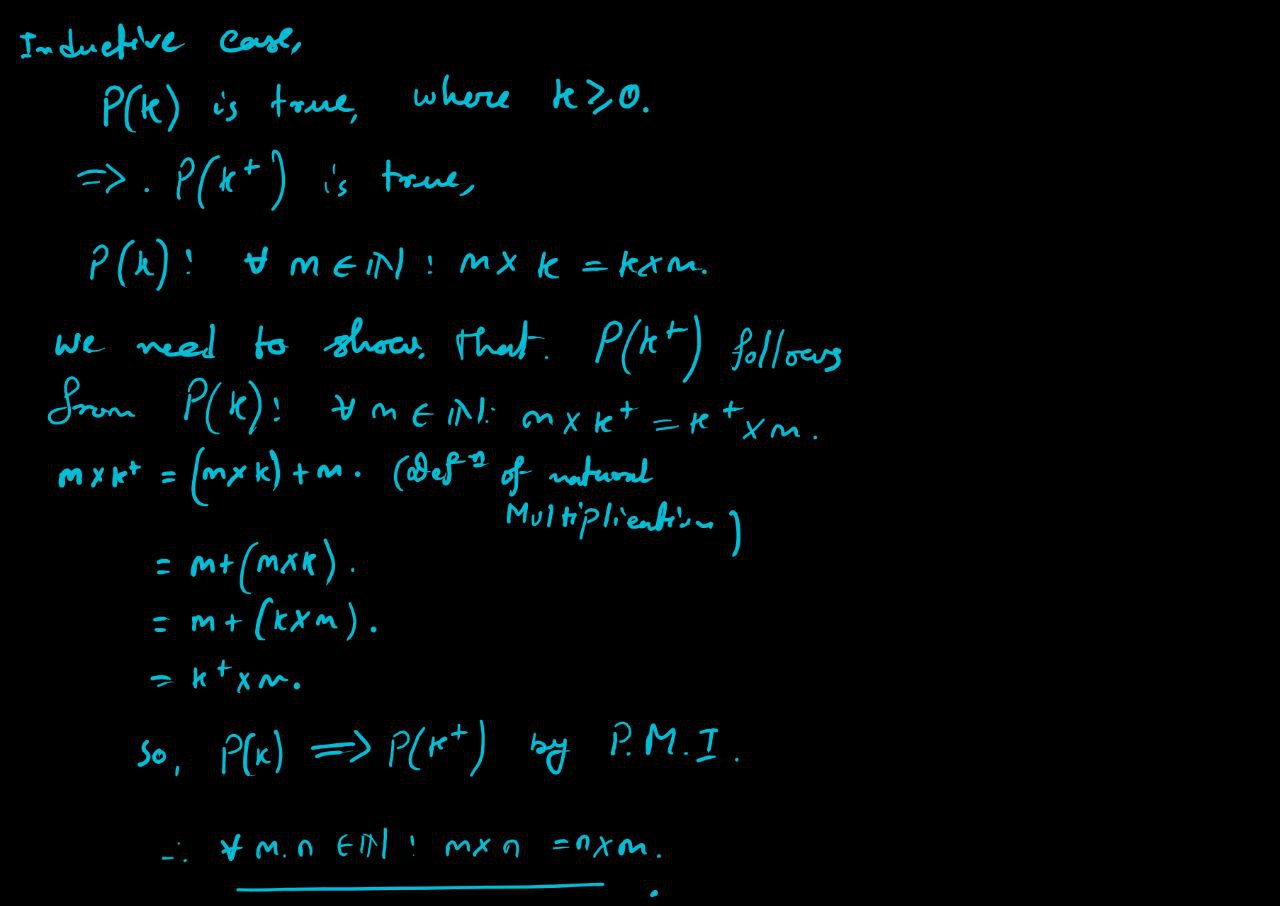 Inductive case,
P(k) is true, where k ≥ 0.
=> . P(k⁺) is true,
P(k): ∀ m ∈ ℕ : m × k = k × m.
we need to show that. P(k⁺) follows
from P(k): ∀ m ∈ ℕ: m × k⁺ = k⁺ × m.
m × k⁺ = (m × k) + m. (Defⁿ of natural
Multiplication)
= m + (m × k).
= m + (k × m).
= k⁺ × m.
so, P(k) ⟹ P(k⁺) by P.M.I.
∴ ∀ m, n ∈ ℕ : m × n = n × m.